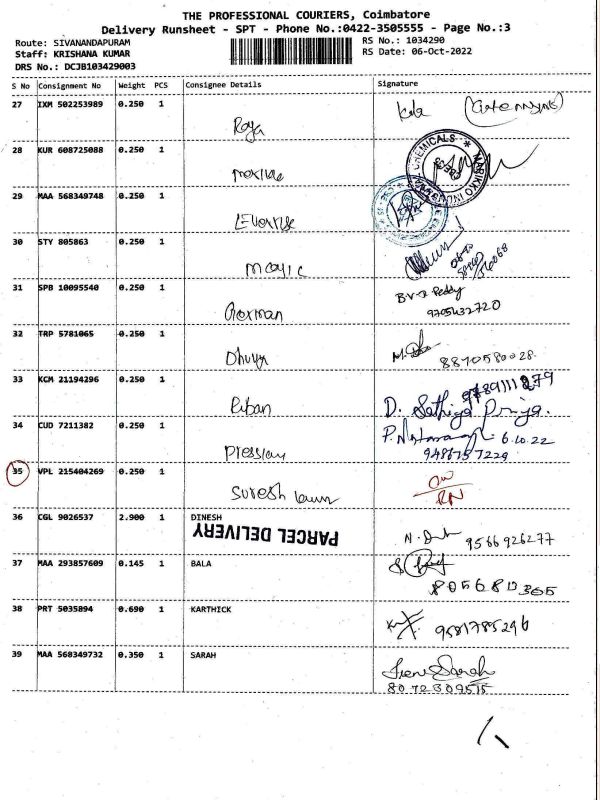 THE PROFESSIONAL COURIERS, Coimbatore
Delivery Runsheet - SPT - Phone No.:0422-3505555 - Page No.:3
Route: SIVANANDAPURAM RS No.: 1034290
Staff: KRISHANA KUMAR RS Date: 06-Oct-2022
DRS No.: DCJB103429003
S No Consignment No Weight PCS Consignee Details Signature
27 IXM 502253989 0.250 1
Raja
28 KUR 608725088 0.250 1
CHEMICALS
29 MAA 568349748 0.250 1
30 STY 805863 0.250 1
Magic
31 SPB 10095540 0.250 1
B.V. Reddy
German 9705432720
32 TRP 5781065 0.250 1
Dhivya 8870580028
33 KCM 21194296 0.250 1
9789111879
Riban D. Sathiya Priya.
34 CUD 7211382 0.250 1
6.10.22
9486757229
35 VPL 215404269 0.250 1
Suresh kumar RN
36 CGL 9026537 2.900 1 DINESH
PARCEL DELIVERY
9566926277
37 MAA 293857609 0.145 1 BALA
38 PRT 5035894 0.690 1 KARTHICK
39 MAA 568349732 0.350 1 SARAH
Irene Sarah
8072309515